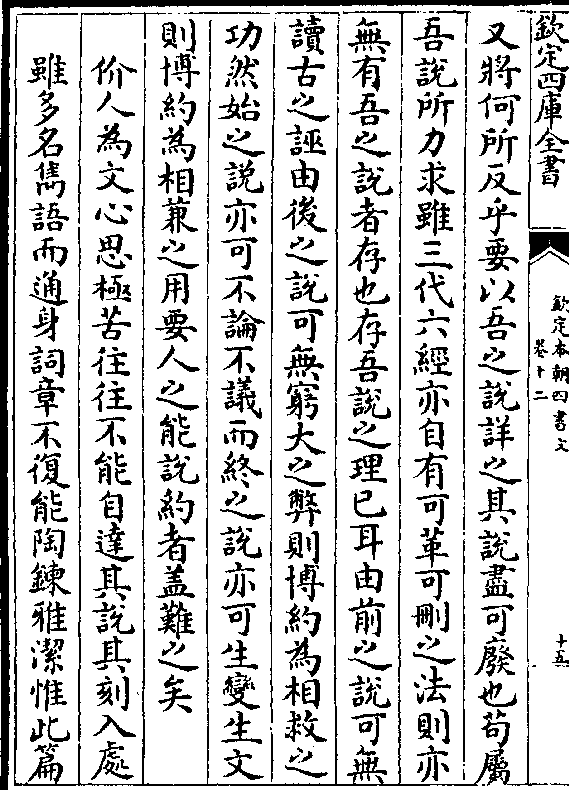 欽定四庫全書
欽定本朝四書文
卷十二
十五
又將何所反乎要以吾之說詳之其說盡可廢也茍屬
吾說所力求雖三代六經亦自有可革可刪之法則亦
無有吾之說者存也存吾說之理已耳由前之說可無
讀古之誣由後之說可無窮大之弊則博約為相救之
功然始之説亦可不論不議而終之說亦可生變生文
則博約為相兼之用要人之能説約者盖難之矣
价人為文心思極苦往往不能自達其說其刻入處
雖多名雋語而通身詞章不復能陶鍊雅潔惟此篇